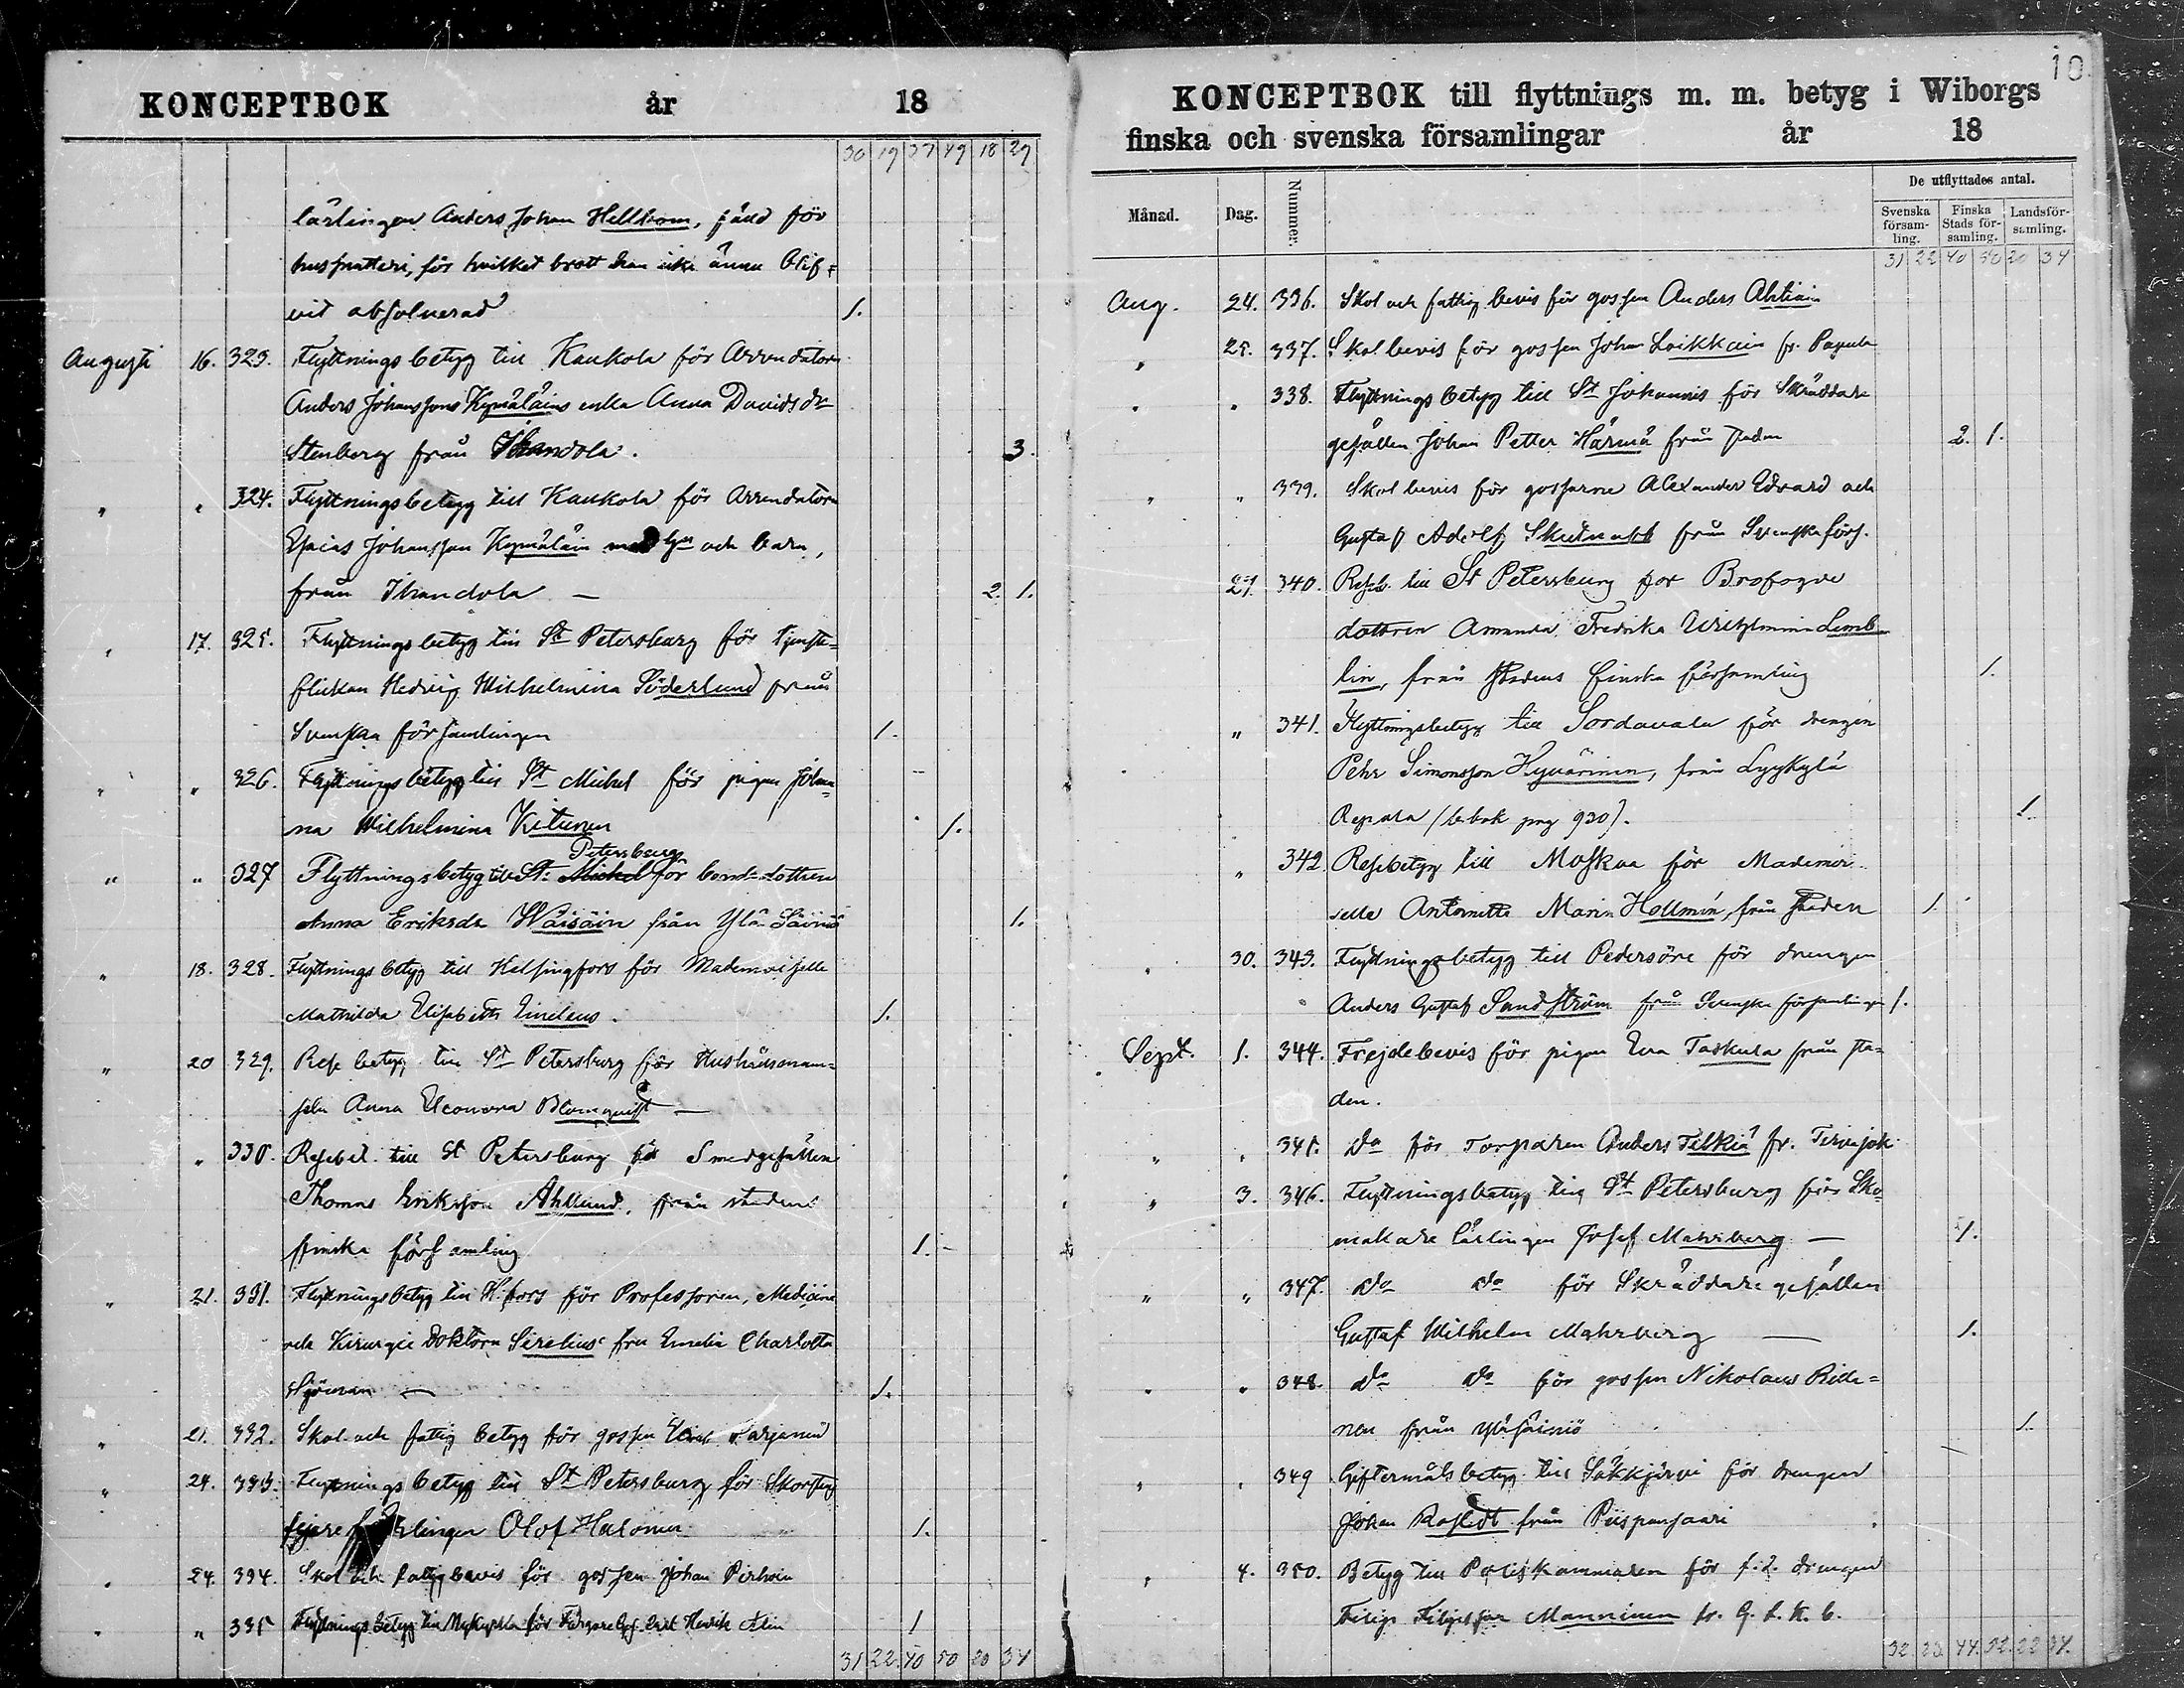 KONCEPTBOK år 18
30 19 37 49 18 29
lärlingen Anders Johan Hellstrom, fälld för
husfnatteri, för hvilket brott han icke ännu blif=
vit absolverad 1.
Augusti 16. 323. Flyttningsbetyg till Kaukola för Arrendatorn
Anders Johanssons Kymäläins enka Anna Davidsdr
Stenberg från Ihandola. 3.
" " 324. Flyttningsbetyg till Kaukola för Arrendatorn
Esaias Johansson Kymäläin med hu och barn,
från Ihandola — 2. 1.
" 17. 325. Flyttningsbetyg till St Petersburg för tjenste=
flickan Hedvig Wilhelmina Söderlund från
Svenska församlingen 1.
" " 326. Flyttningsbetyg till St Michel för pigan Johan=
na Wilhelmina Vitunen 1.
" " 327 Flyttningsbetyg till St: Michel Petersburg för bonde dottren
Anna Eriksdr Wäisäin från Ylä Säiniö 1.
" 18. 328. Flyttningsbetyg till Helsingfors för Mademoiselle
Mathilda Elisabeth Lindeus. 1.
" 20 329. Rese betyg till St Petersburg för Hushållsmam=
seln Anna Eleonora Blomqvist —
" 330. Resebet. till St Petersburg för Smedgesällen
Thomas Eriksson Ahllund, från stadens
finska församling 1.
" 21. 331. Flyttningsbetyg till H:fors för Professoren, Medicine
och Kirurgie Doktorn Sirelius' fru Emelie Charlotta
Sjöman — 1.
" 21. 332. Skol och fattig betyg för gossen Tarjamo
" 24. 333. Flyttningsbetyg till St Petersburg för Skorstens
fejare lärlingen Olof Halonen 1.
" 24. 334. Skol och fattig bevis för gossen Johan Pirhoin
" " 335 Flyttningsbetyg till Nykyrkka för Färgare Ges. Carl Henrik Elin 1
31 22. 40 50 20 34
KONCEPTBOK till flyttnings m. m. betyg i Wiborgs
finska och svenska församlingar år 18
10.
Månad. Dag. Nummer. De utflyttades antal.
Svenska församling. Finska Stads församling. Landsförsamling.
31 22 40 50 20 34
Aug. 24. 336. Skol och fattig bevis för gossen Anders Ahtiain
" 25. 337. Skol bevis för gossen Johan Loikkain fr. Papula
" " 338. Flyttningsbetyg till St Johannis för Skräddare
gesällen Johan Petter Härmä från staden 2. 1.
" " 339. Skol bevis för gossarne Alexander Edvard och
Gustaf Adolf Skutnabb från Svenska förs.
27. 340. Reseb. till St Petersburg for Brofogde
dottren Amanda Fredrika Wilhelmina Lemb
lin, från stadens finska församling 1.
" 341. Flyttningsbetyg till Sordavala för drengen
Pehr Simonsson Hyvärinen, från Lyykylä
Repola (l:bok pag 930). 1.
" 342. Resebetyg till Moskva för Mademoi
selle Antoinette Maria Hollmén, från staden 1.
" 30. 343. Flyttningsbetyg till Pedersöre för drengen
Anders Gustaf Sandström från Svenska församlingen 1.
Sept. 1. 344. Frejdebevis för pigan Eva Taskula från sta=
den.
" " 345. do för Torparen Anders Tilkiä fr. Tervajok
" 3. 346. Flyttningsbetyg till St Petersburg för Sko
makare lärlingen Josef Mahrberg — 1.
" " 347. do do för Skräddare gesällen
Gustaf Wilhelm Mahrberg — 1.
" " 348. do do för gossen Nikolaus Ritta=
nen från Yläsäiniö 1.
" " 349 Giftermåls betyg till Säkkjärvi för drengen
Johan Rostedt från Piispansaari
" 4. 350. Betyg till Poliskammaren för f.d. drengen
Filip Filipsson Manninen fr. G. L. K. b.
32 23. 44. 52. 22 34.